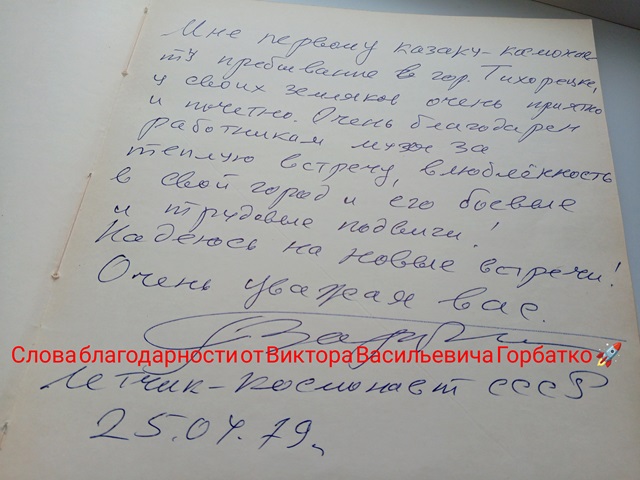 Мне первому казаку-космонав-
ту пребывание в гор. Тихорецке,
у своих земляков очень приятно
и почетно. Очень благодарен
работникам музея за
теплую встречу, влюблённость
в свой город и его боевые
и трудовые подвиги!
Надеюсь на новые встречи!
Очень уважая вас.
Слова благодарности от Виктора Васильевича Горбатко 🚀
Летчик-космонавт СССР
25.04.79г.